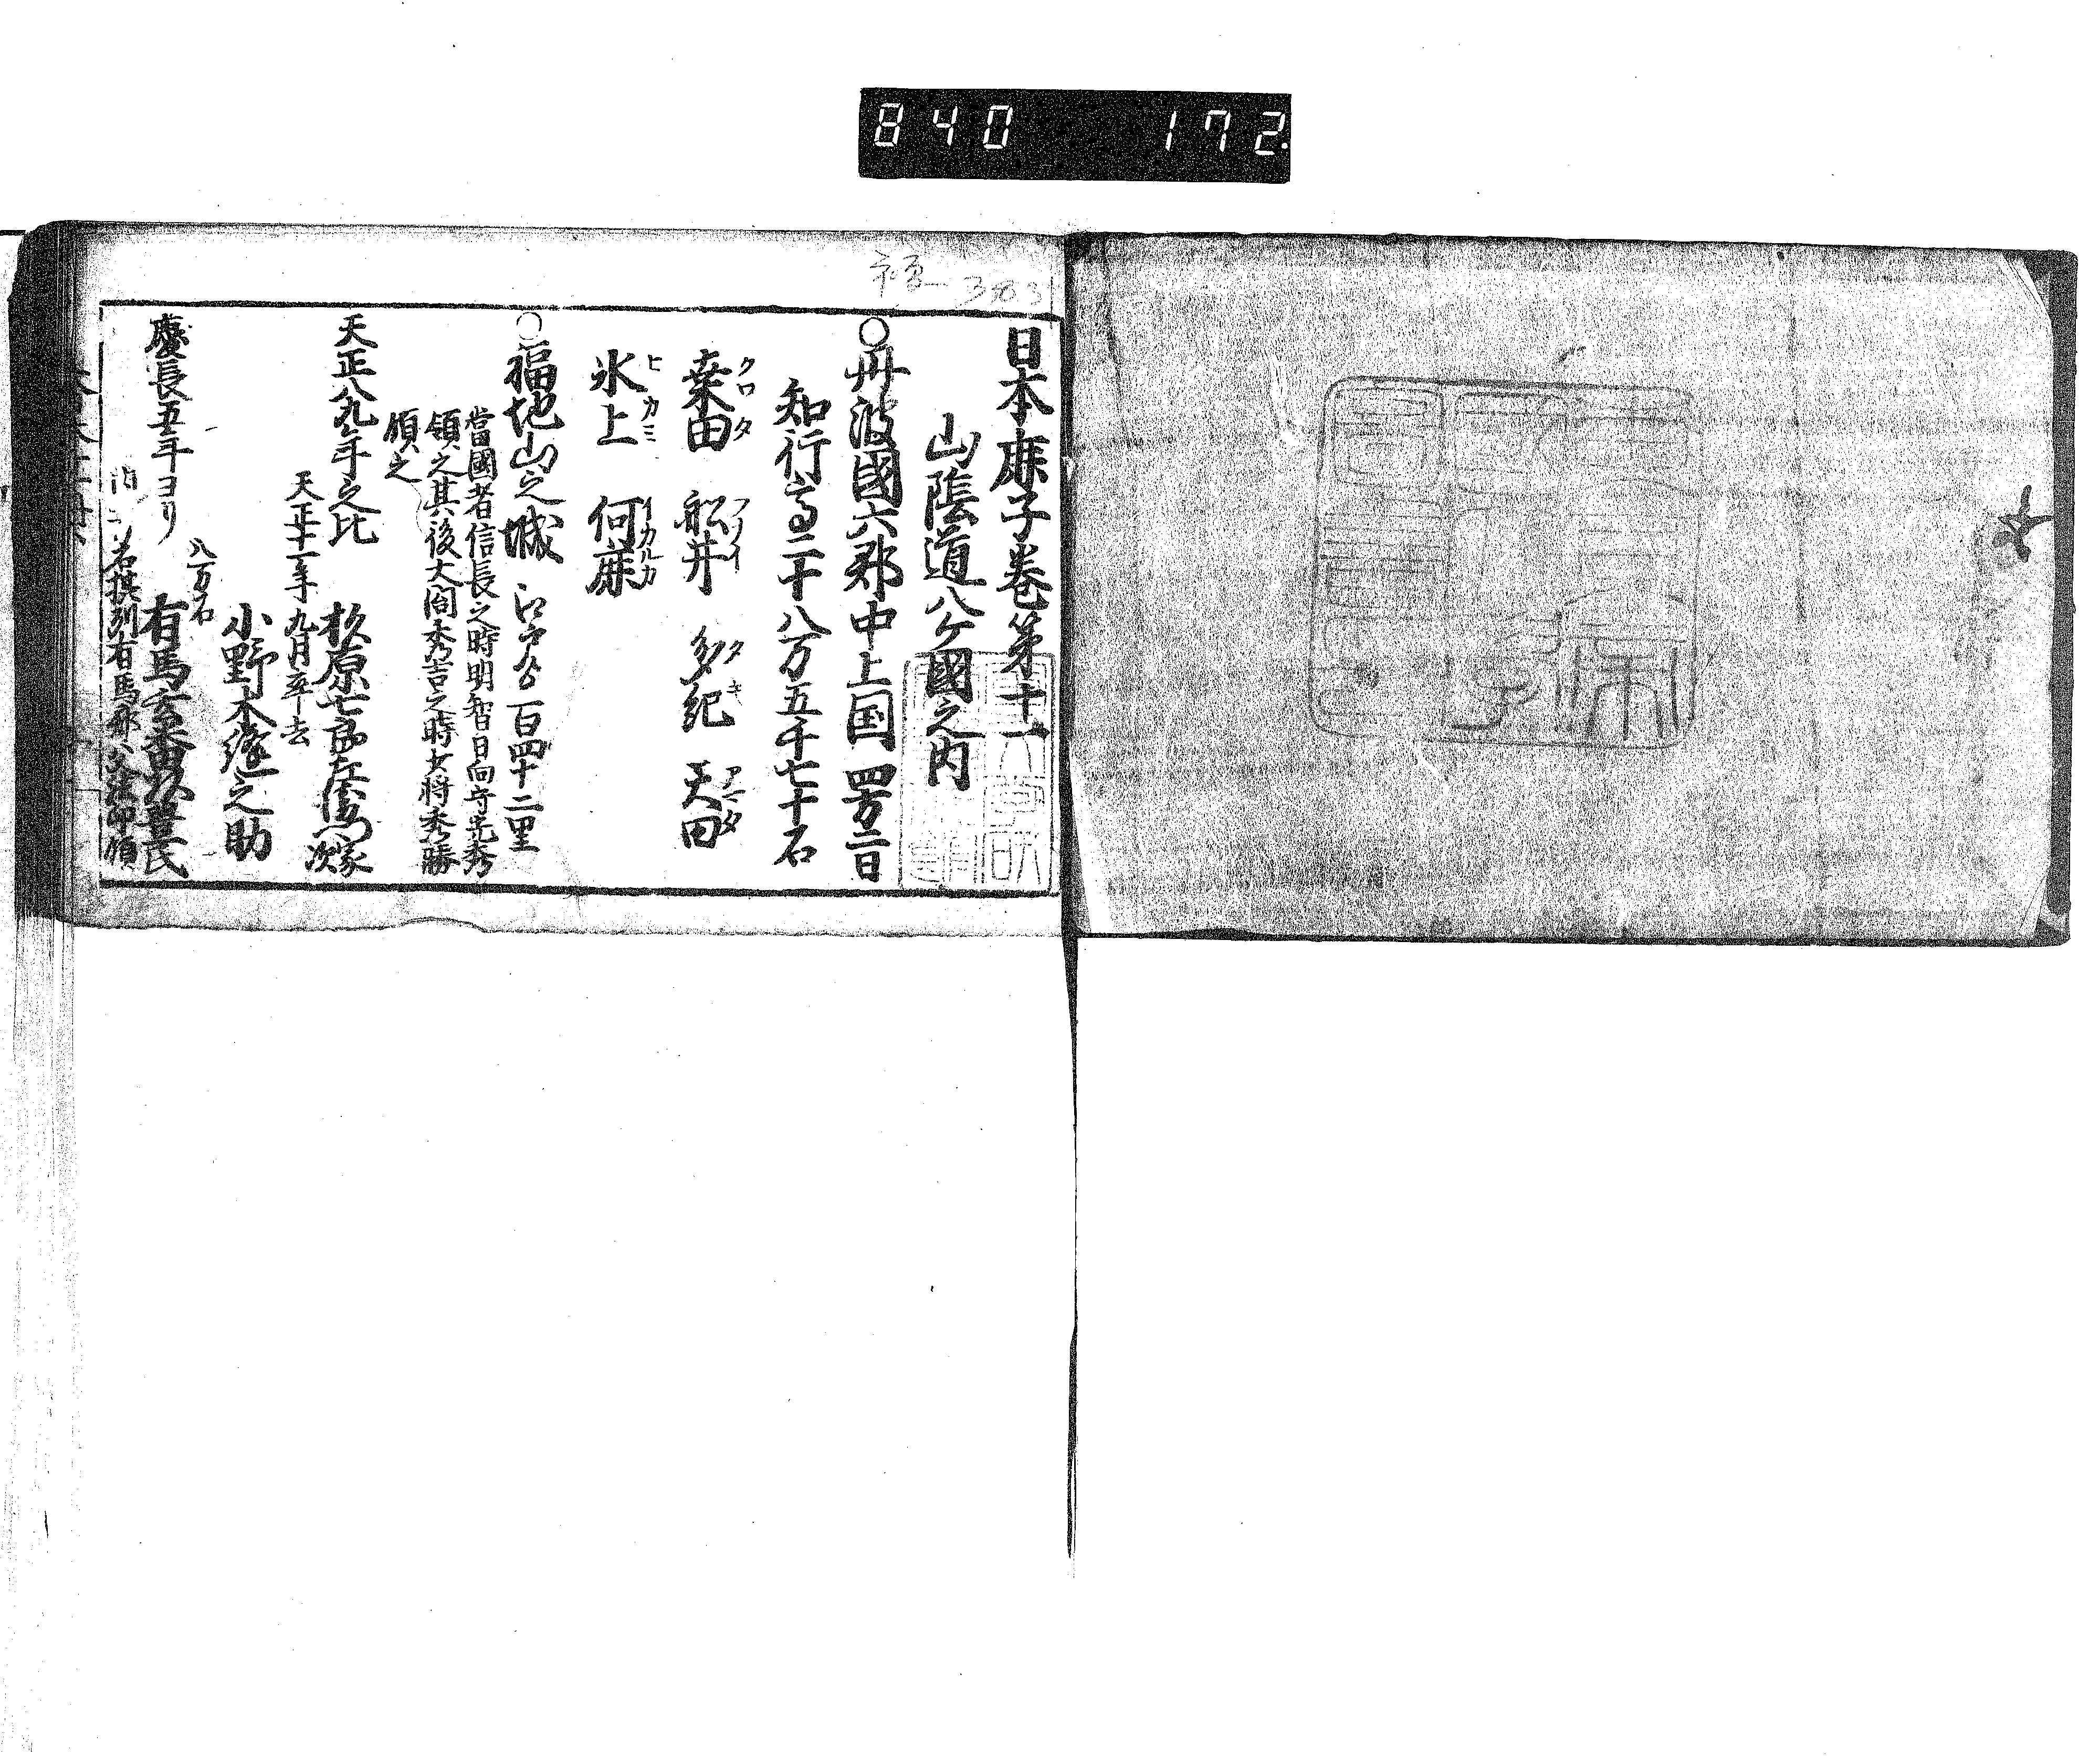 840 172
日本鹿子巻第十一
山陰道八ケ國之内
○丹波國六郡中上国 四方二日
知行高二十八万五千七十石
桒田 船井 多紀 天田
クロタ フナイ タキ アマタ
氷上 何鹿
ヒカミ イカルカ
○福地山之城 江戸ゟ百四十二里
當國者信長之時明智日向守光秀
領之其後大閤秀吉之時少将秀勝
領之
天正八九年之比 杦原七郎左衛門家次
天正十一年九月卒去
小野木縫之助
慶長五年ヨリ 八万石 有馬玄番頭豊氏
有馬郡父法印領